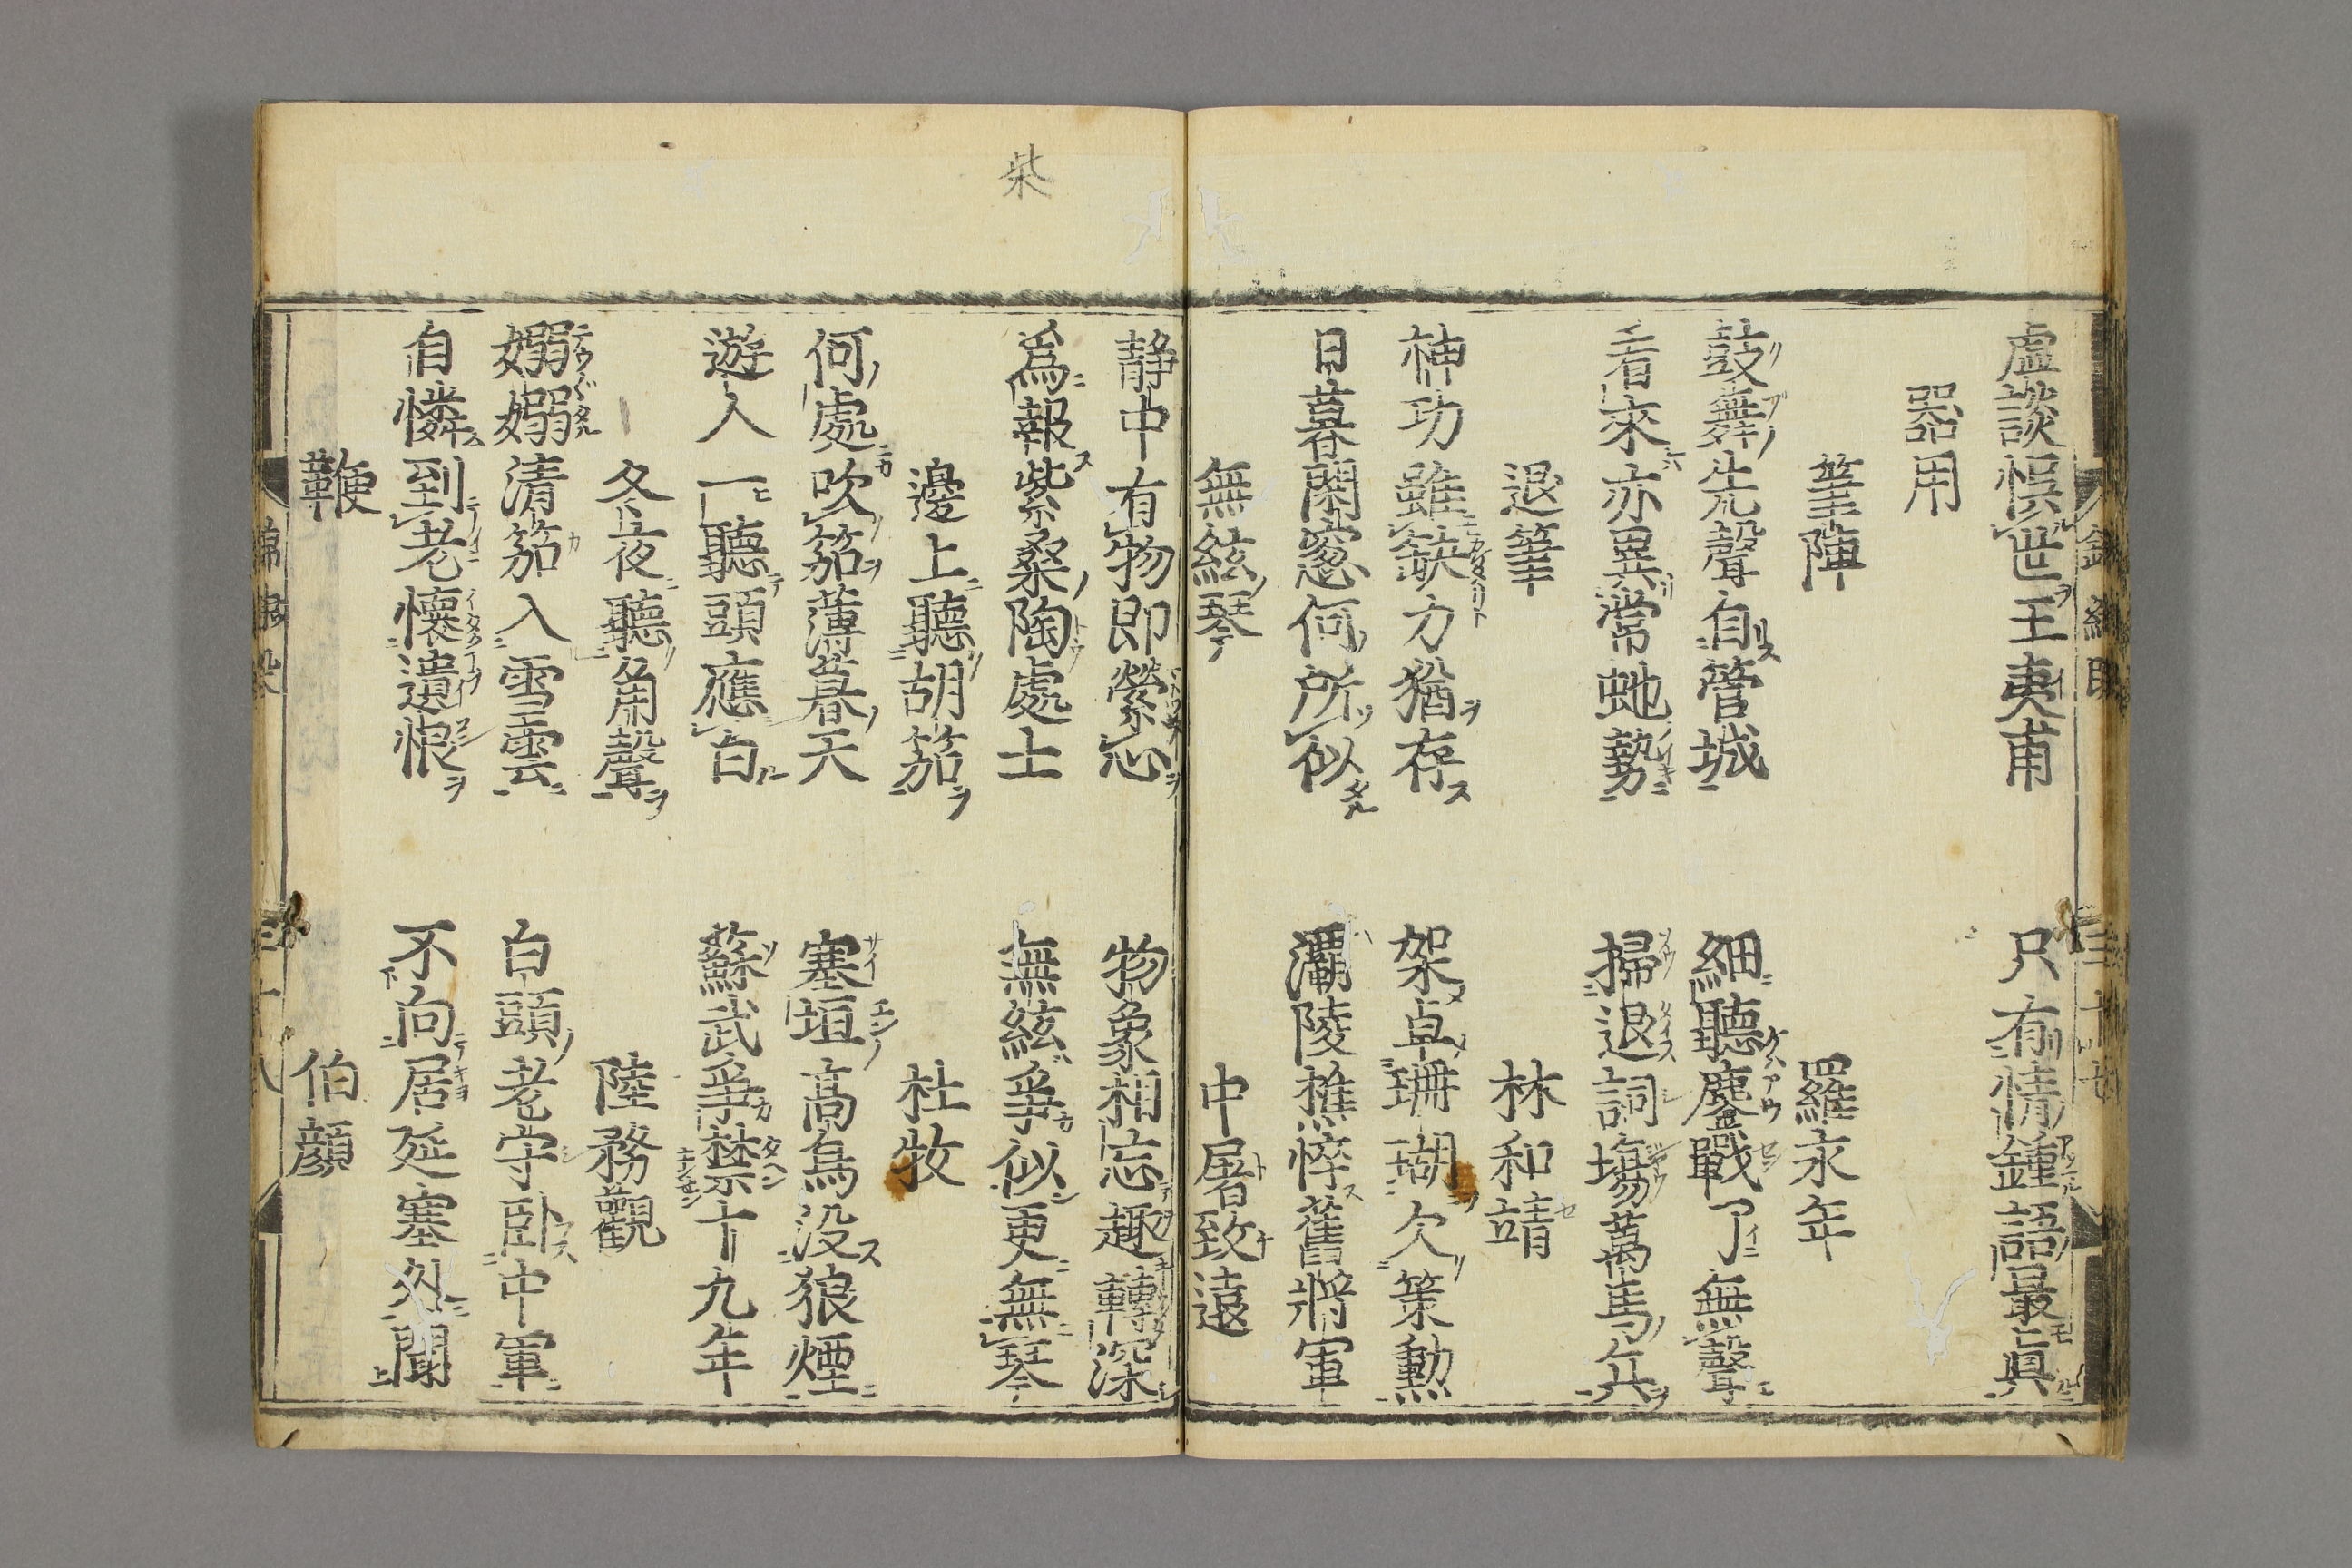 虚談悞世王夷甫　只有情鍾語最真
器用
筆陣　羅永年
鼓舞先聲自管城　細聽鏖戰了無聲
看來亦異常虵勢　掃退詞塲萬馬兵
退筆　林和靖
神功雖缺力猶存　架卓珊瑚欠策勲
日暮閑窓何所似　灞陵憔悴舊將軍
無絃琴　中屠致遠
静中有物即縈心　物象相忘趣轉深
爲報紫桑陶處士　無絃爭似更無琴
柴
邊上聽胡笳　杜牧
何處吹笳薄暮天　塞垣髙鳥没狼煙
遊人一聽頭應白　蘇武爭禁十九年
冬夜聽角聲　陸務觀
嫋嫋清笳入雪雲　白頭老守卧中軍
自憐到老懷遺恨　不向居延塞外聞
鞭　伯顔